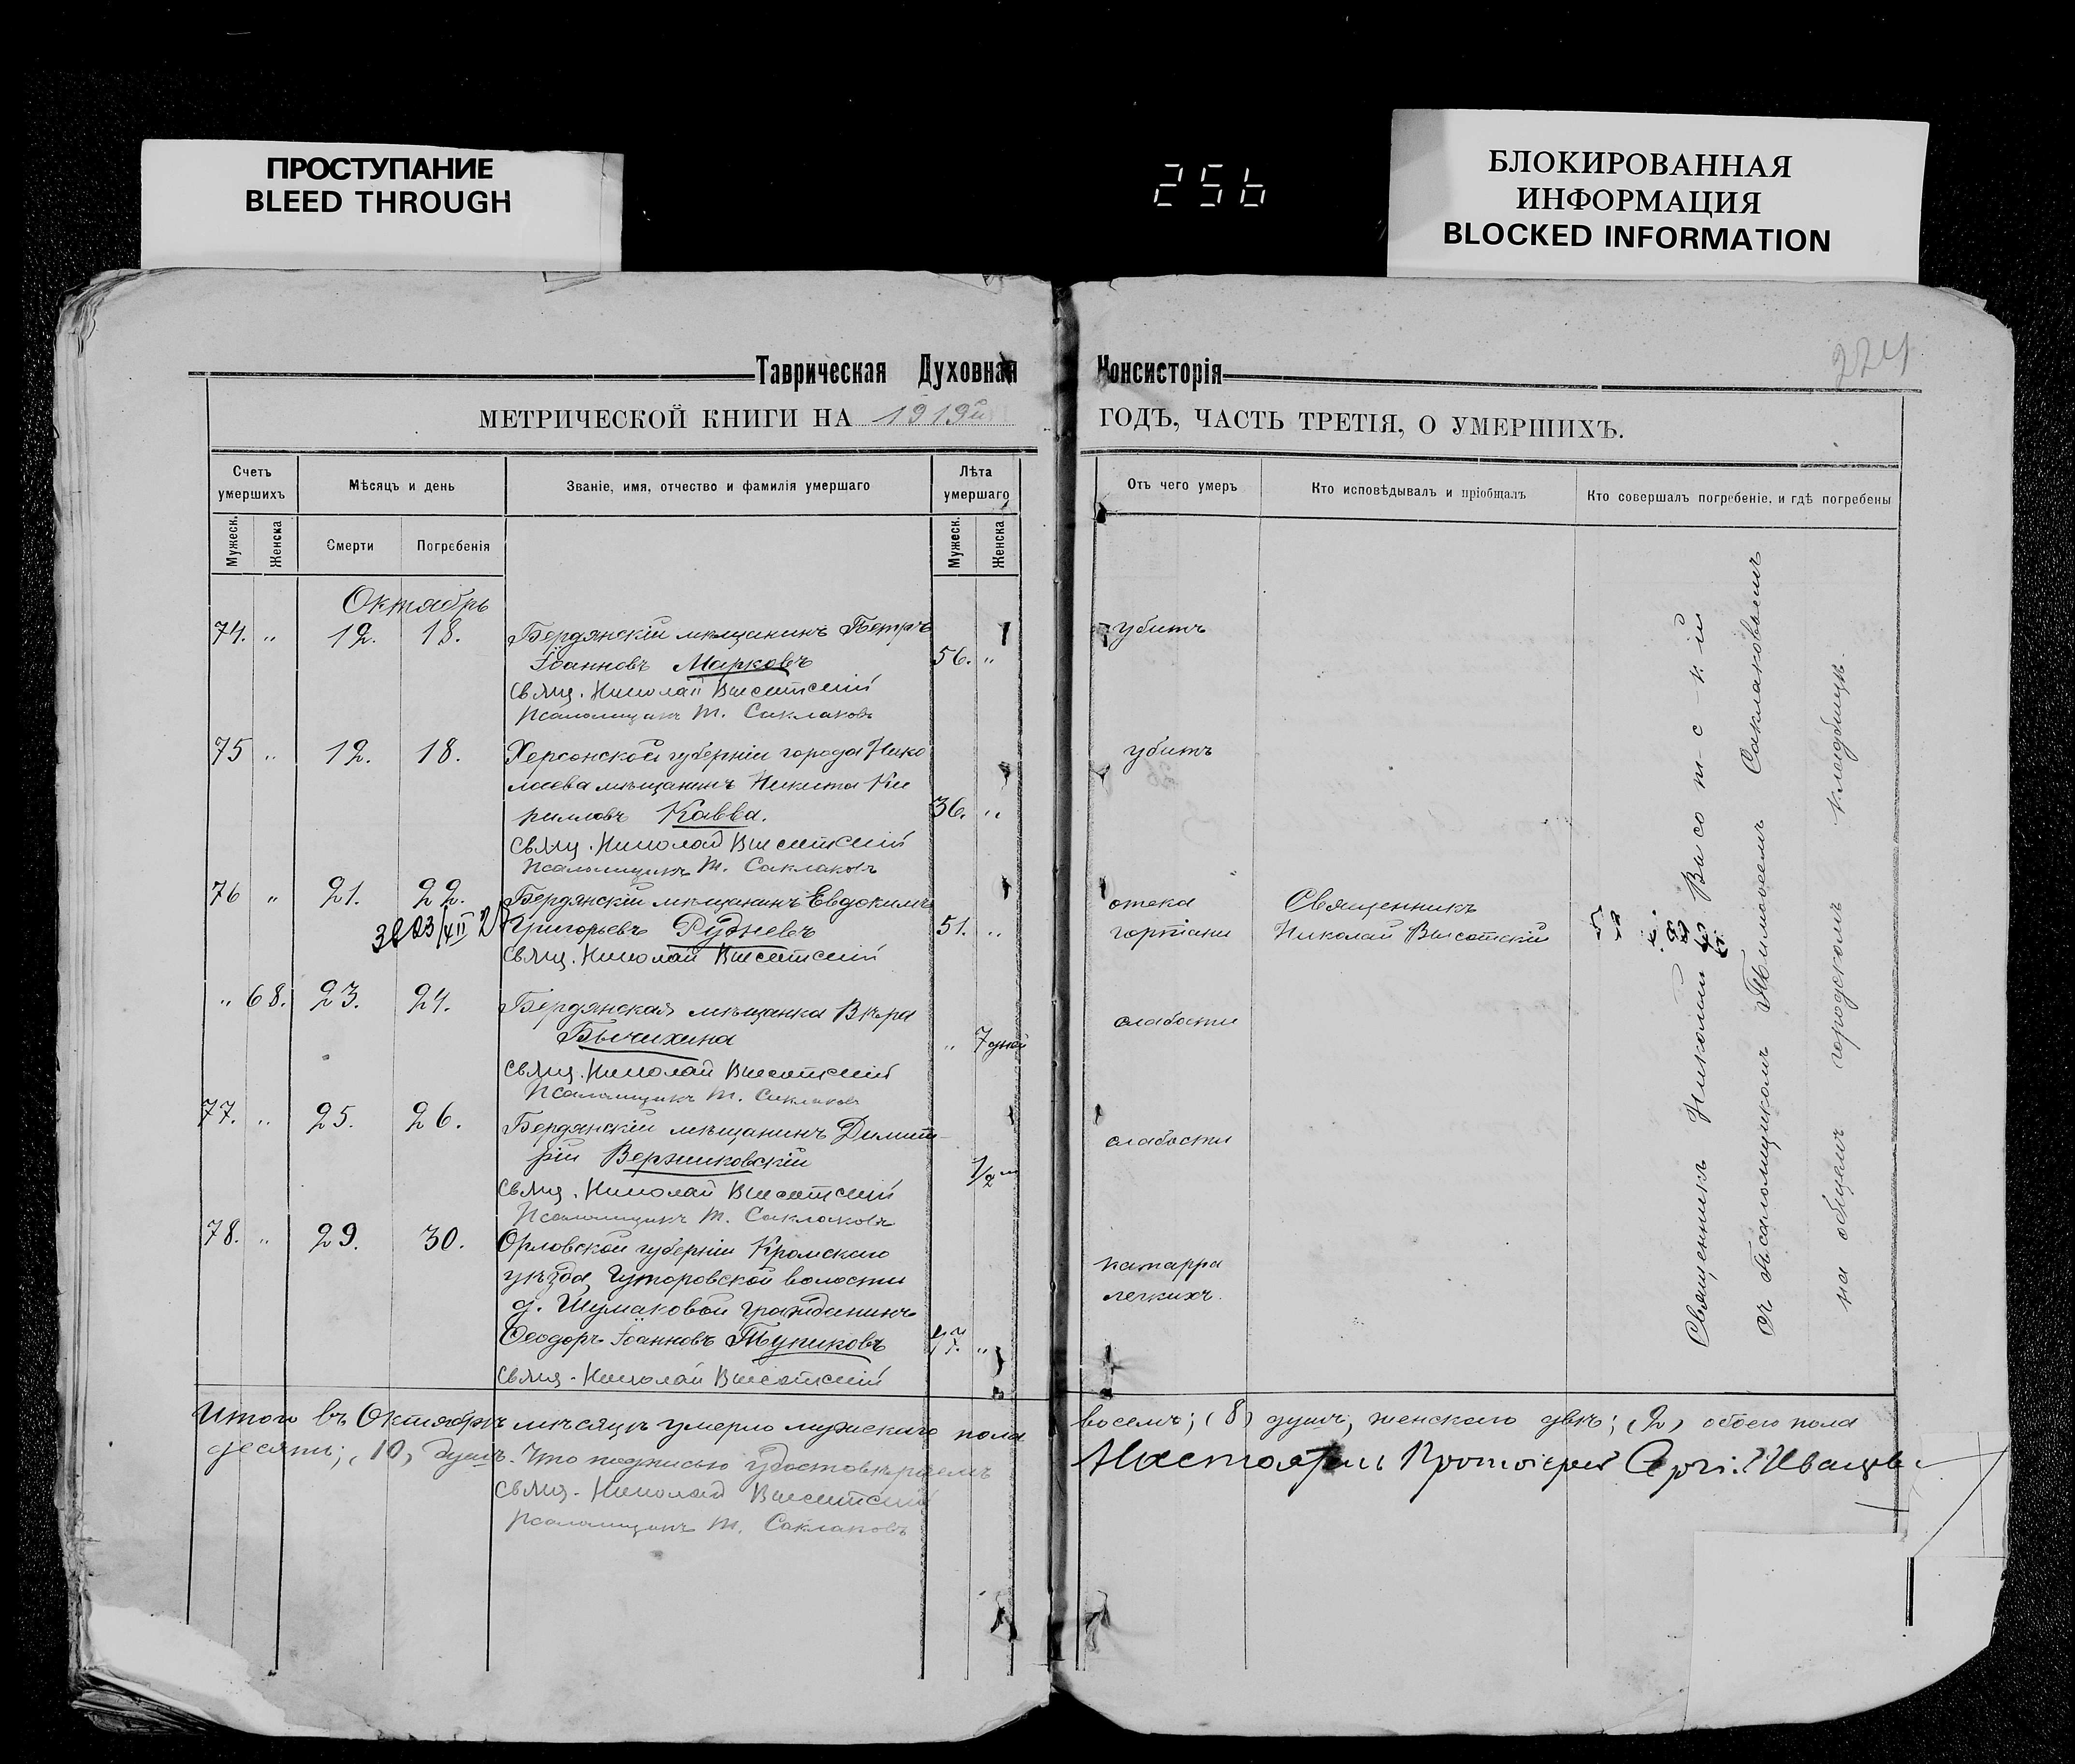 ПРОСТУПАНИЕ
BLEED THROUGH
256
БЛОКИРОВАННАЯ
ИНФОРМАЦИЯ
BLOCKED INFORMATION
Таврическая Духовная Консисторія
224
МЕТРИЧЕСКОЙ КНИГИ НА 1919й ГОДЪ, ЧАСТЬ ТРЕТІЯ, О УМЕРШИХЪ.
Счетъ умершихъ
Мѣсяцъ и день
Званіе, имя, отчество и фамилія умершаго
Лѣта умершаго
Отъ чего умеръ
Кто исповѣдывалъ и пріобщалъ
Кто совершалъ погребеніе, и гдѣ погребены
Мужеск.
Женска
Смерти
Погребенія
Мужеск.
Женска
Октябрь
74. " 12. 18. Бердянскій мѣщанинъ Петръ убитъ
Іоанновъ Марковъ 56. "
Свящ. Николай Высотскій
Псаломщикъ Т. Саклаковъ
75 " 12. 18. Херсонской губерніи города Нико убитъ
лаева мѣщанинъ Никита Ки
рилловъ Кавва. 36. "
Свящ. Николай Высотскій
Псаломщикъ Т. Саклаковъ
76 " 21. 22. Бердянскій мѣщанинъ Евдокимъ отека Священникъ
Григорьевъ Рудневъ 51. " гортани Николай Высотскій
Свящ. Николай Высотскій
" 68. 23. 24. Бердянская мѣщанка Вѣра слабости
Бычихина " 7 дней
Свящ. Николай Высотскій
Псаломщикъ Т. Саклаковъ
77. " 25. 26. Бердянскій мѣщанинъ Димит- слабости
рій Вержиковскій 1/2
Свящ. Николай Высотскій
Псаломщикъ Т. Саклаковъ
78. " 29. 30. Орловской губерніи Кромскаго катарра
уѣзда, Гуторовской волости легкихъ.
д. Шумаковой гражданинъ
Ѳеодоръ Іоанновъ Тупиковъ "
Свящ. Николай Высотскій
Священникъ Николай Высотскій
съ Псаломщикомъ Тимоѳеемъ Саклаковымъ
на общемъ городскомъ кладбищѣ.
Итого въ Октябрѣ мѣсяцѣ умерло мужскаго пола восемь; (8) душъ, женскаго двѣ; (2) обоего пола
десять; (10) душъ. Что подписью удостовѣряемъ
Свящ. Николай Высотскій
Псаломщикъ Т. Саклаковъ
Настоятель Протоіерей